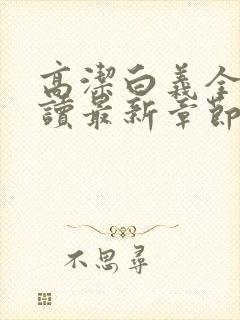 高潔白義全
讀最新章節
不思尋